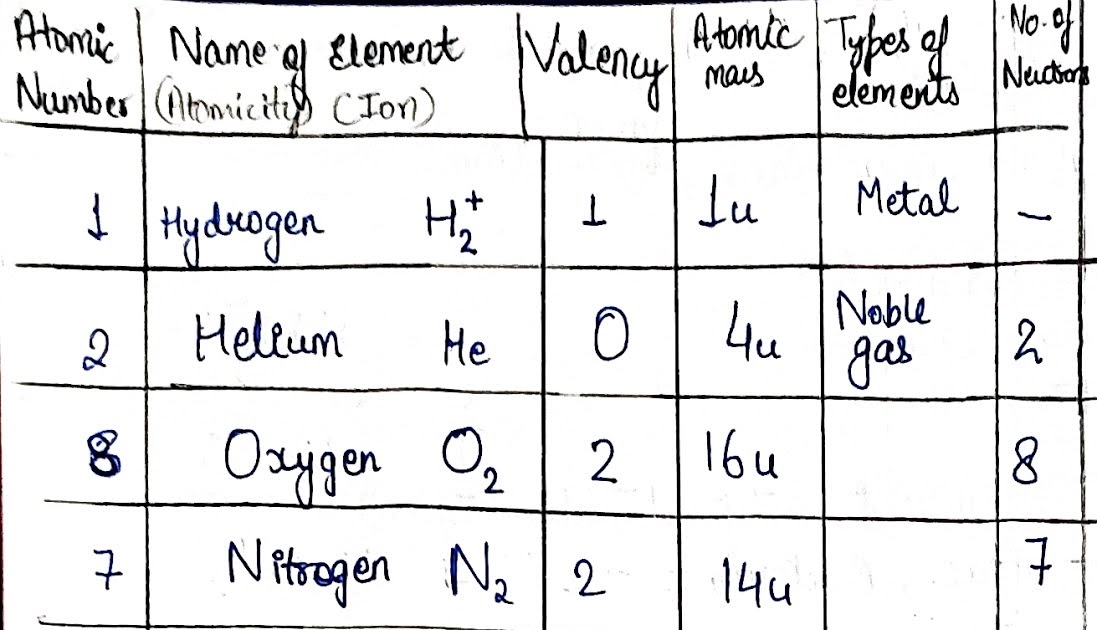 Atomic Number | Name of Element (Atomicity) (Ion) | Valency | Atomic mass | Types of elements | No. of Neutrons
1 | Hydrogen H₂⁺ | 1 | 1u | Metal | –
2 | Helium He | 0 | 4u | Noble gas | 2
8 | Oxygen O₂ | 2 | 16u | | 8
7 | Nitrogen N₂ | 2 | 14u | | 7